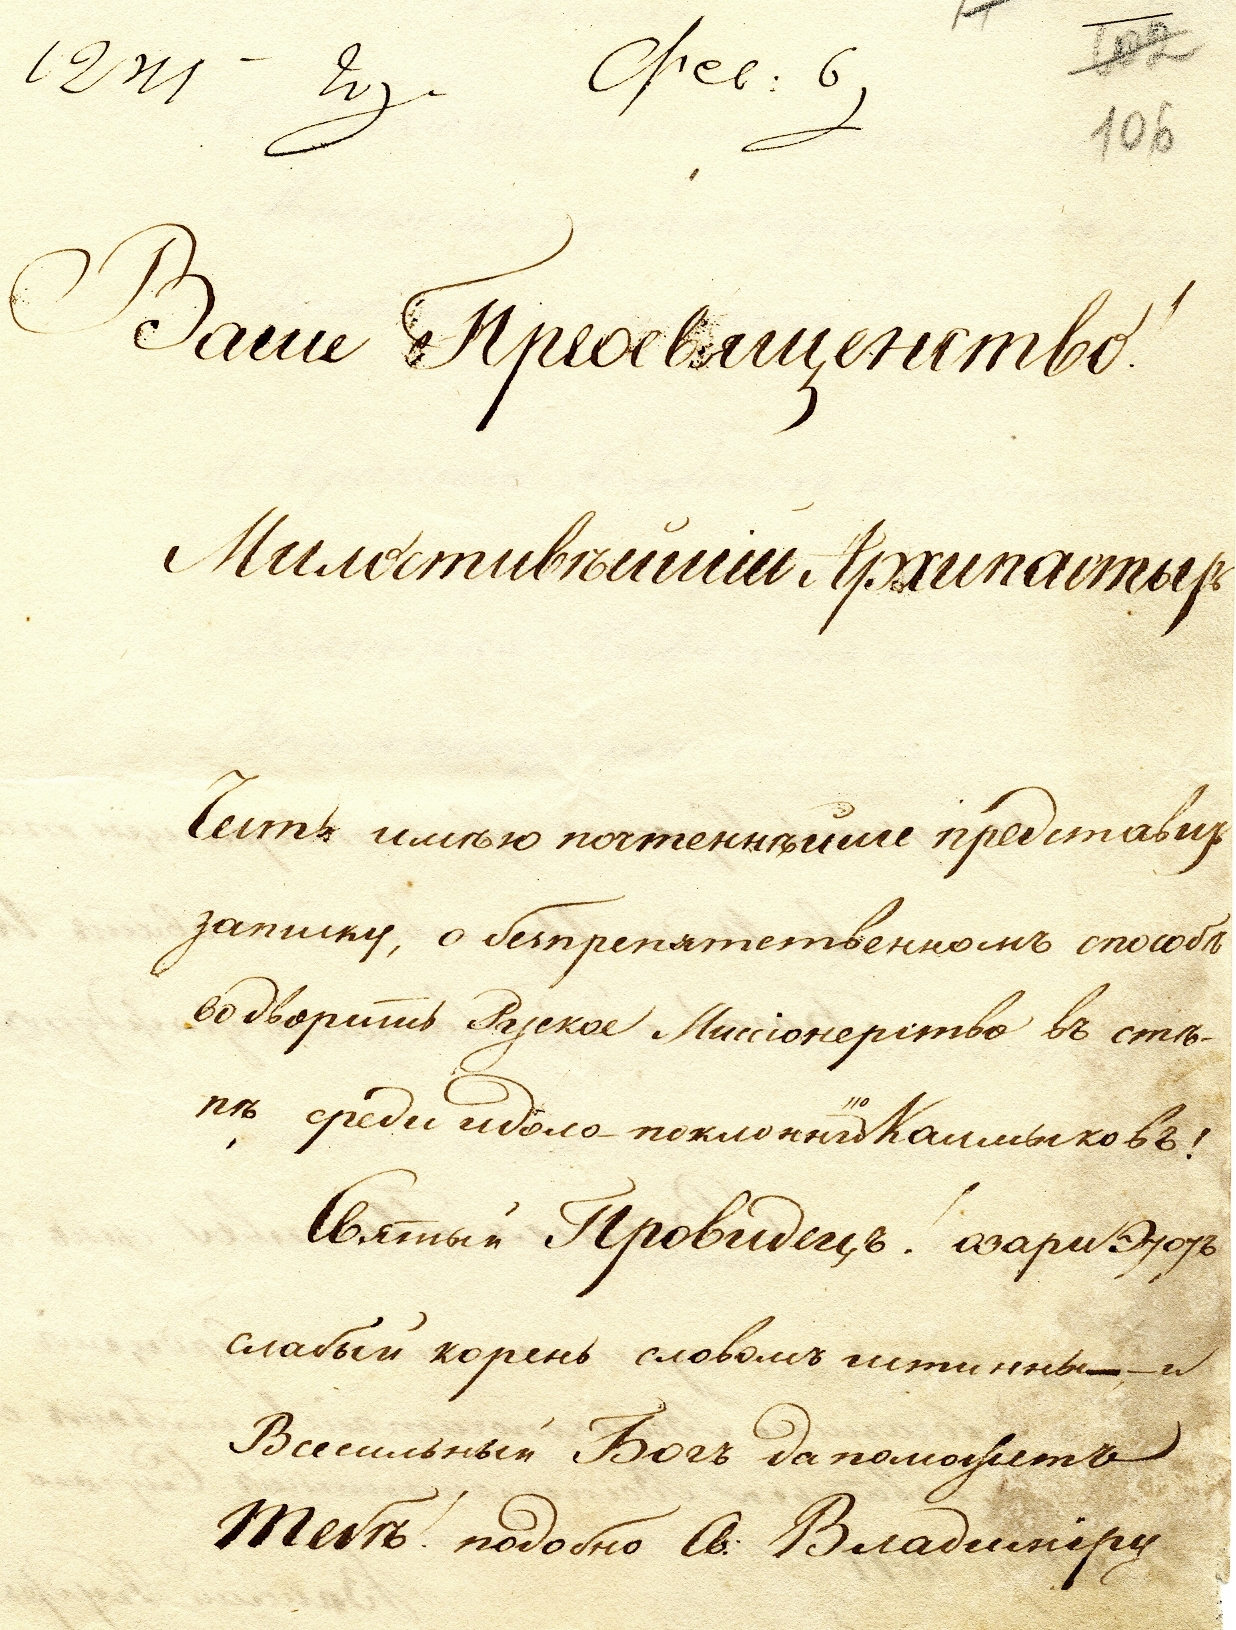 Фев: 6
106
Ваше Преосвященство!
Милостивѣйшій Архипастырь
Честь имѣю почтеннѣйше представить
записку, о безпрепятственномъ способѣ
водворить Руское Миссіонерство въ стѣ-
пѣ среди идоло-поклонно Калмыковъ!
Святый Провидецъ! озари Этотъ
слабый корень словомъ истинны — и
Всесильный Богъ да поможетъ
Тебѣ! подобно Св: Владиміру